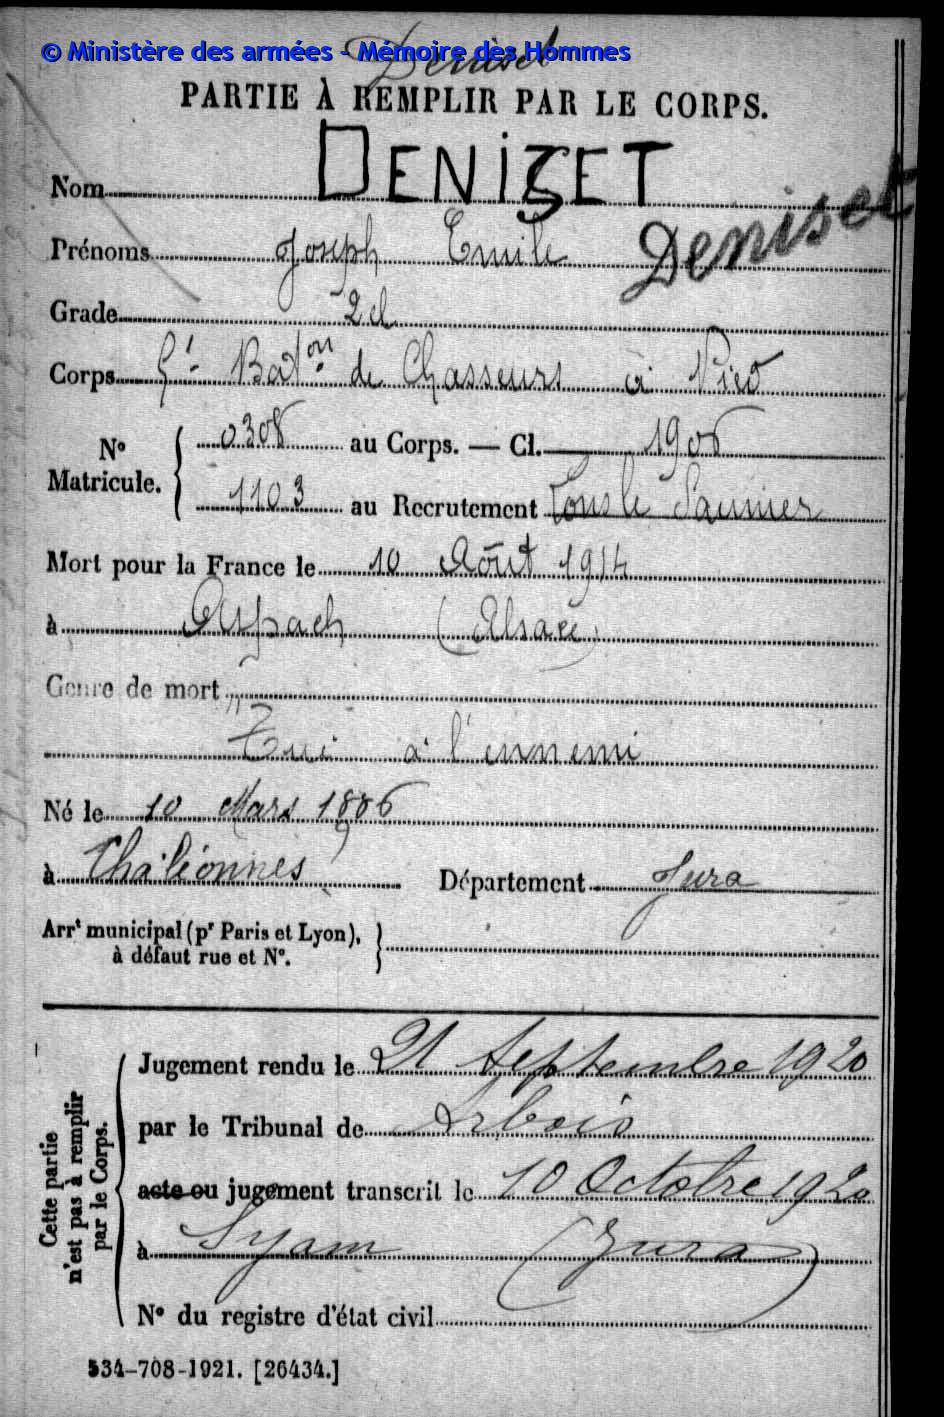 © Ministère des armées - Mémoire des Hommes
Deniset
PARTIE À REMPLIR PAR LE CORPS.
Nom DENISET
Deniset
Prénoms Joseph Emile
Grade 2 cl
Corps 5e Baton de Chasseurs à Pied
No Matricule. 0308 au Corps. — Cl. 1906
1103 au Recrutement Lons le Saunier
Mort pour la France le 10 Août 1914
à Aspach (Alsace)
Genre de mort
Tué à l'ennemi
Né le 10 Mars 1886
à Département Jura
Arrt municipal (pr Paris et Lyon),
à défaut rue et No.
Cette partie
n'est pas à remplir
par le Corps.
Jugement rendu le 21 Septembre 1920
par le Tribunal de Arbois
acte ou jugement transcrit le 10 Octobre 1920
à Syam (Jura)
No du registre d'état civil
534-708-1921. [26434.]